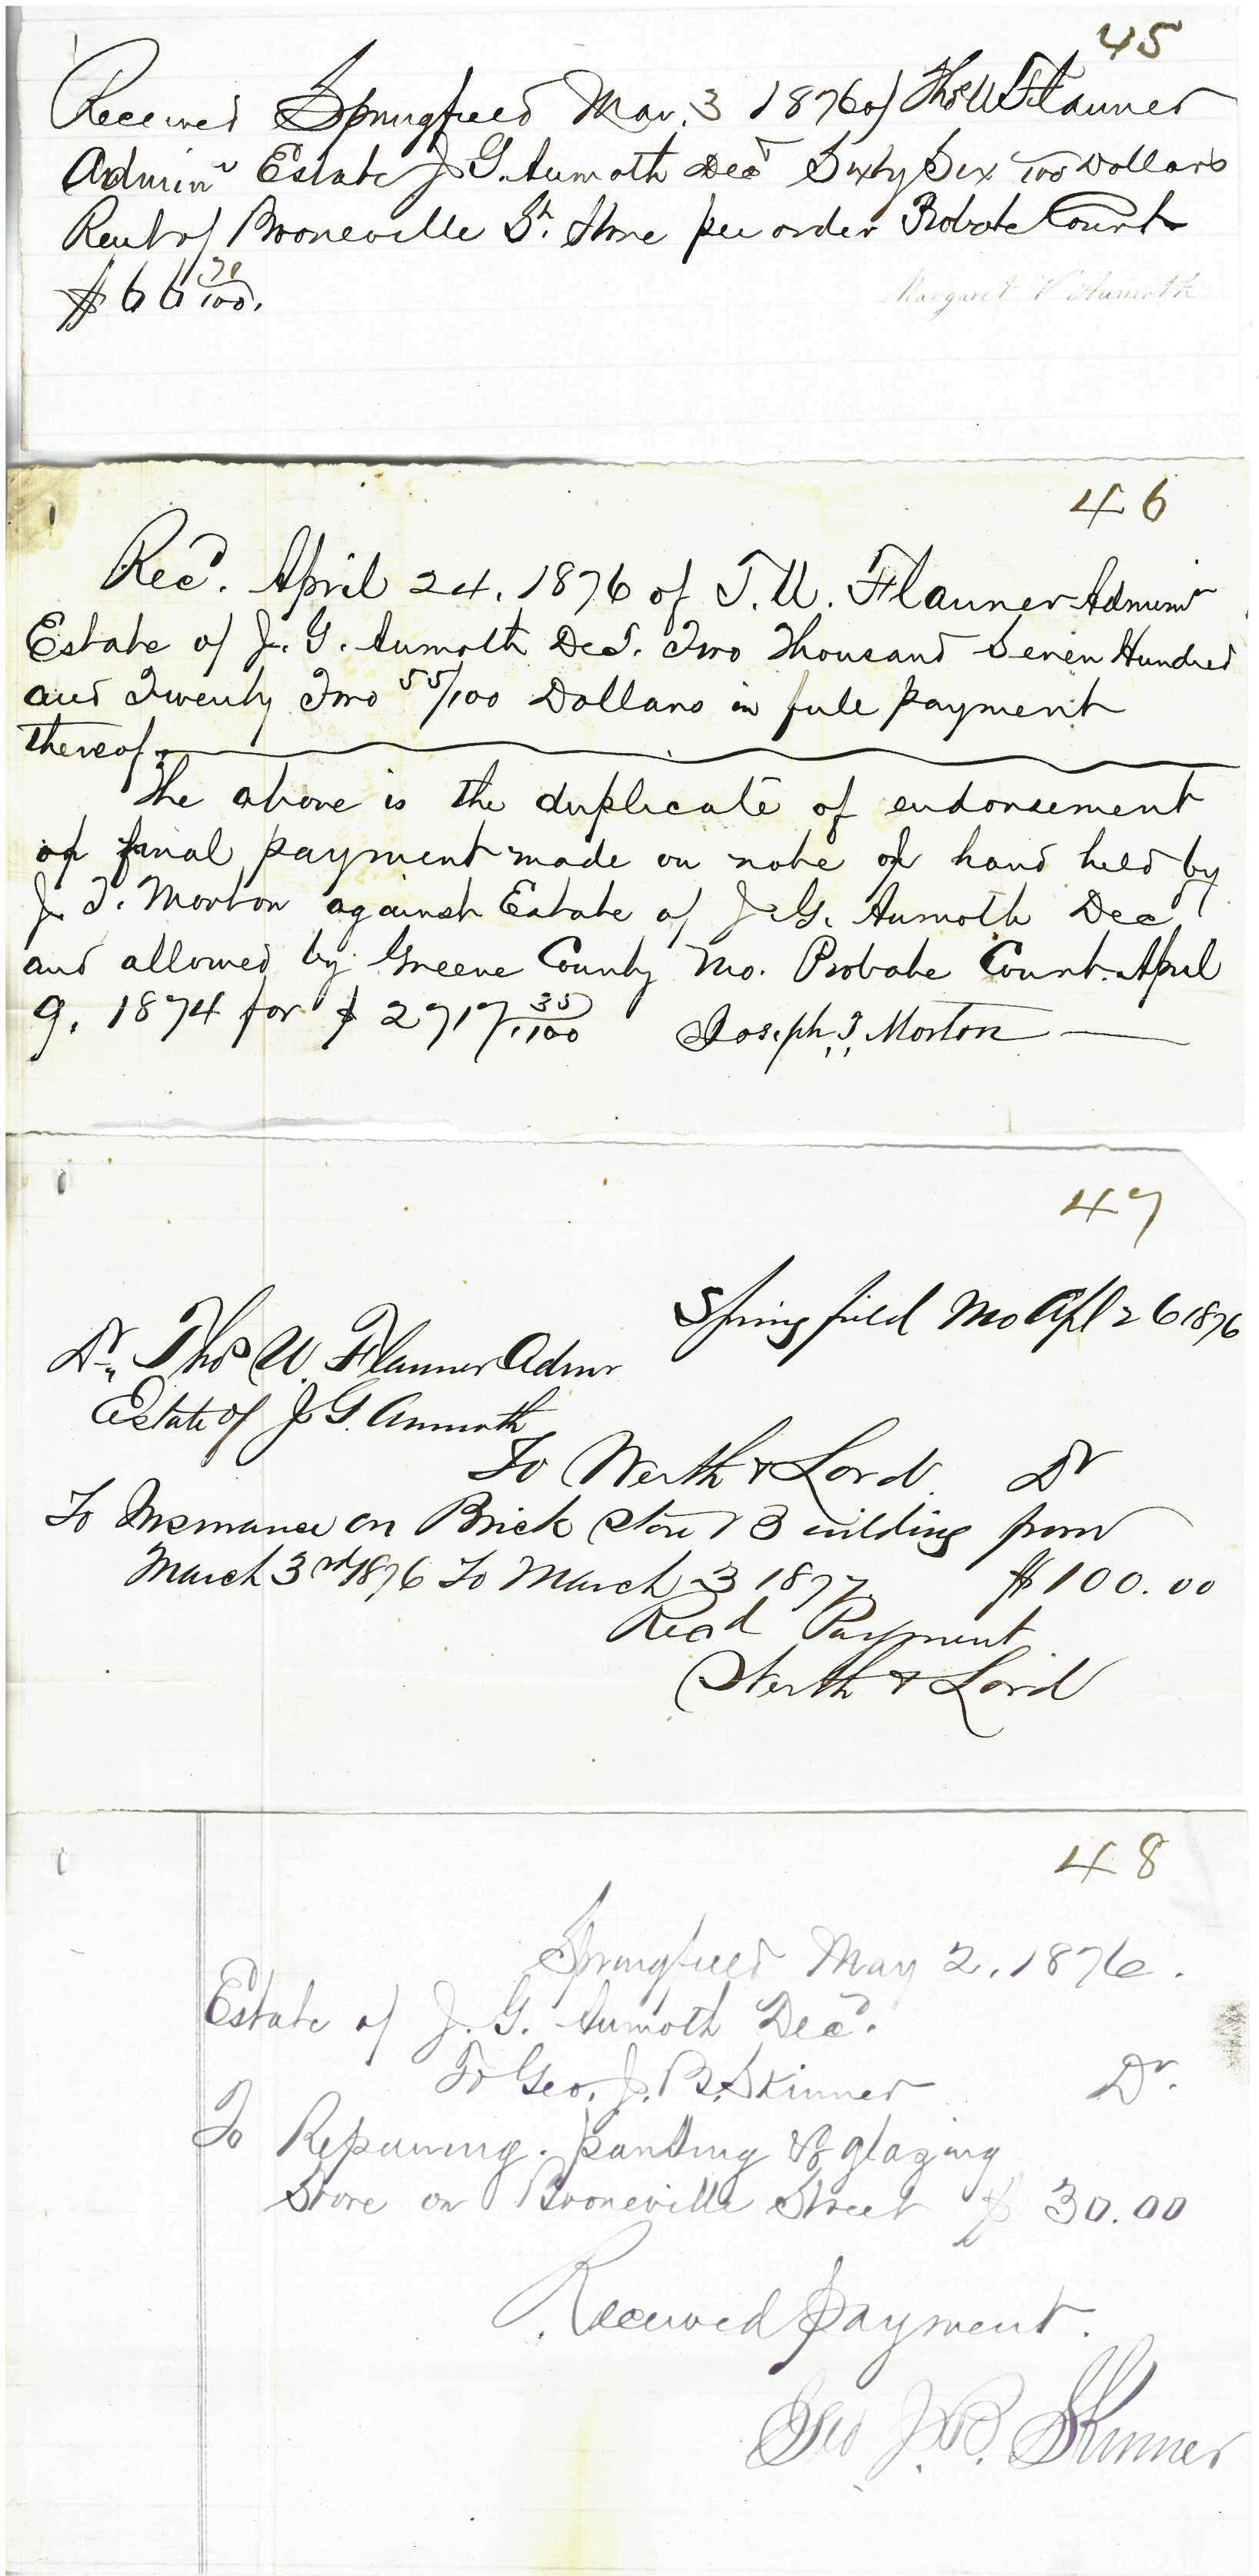 45
Received Springfield Mar. 3 1876 of Thos U Flanner
Adminr Estate J. G. Aumoth Decd Sixty Six /100 Dollars
Rent of Booneville St. Store per order Probate Court
$66 70/100.
Margaret V Aumoth
46
Recd. April 24, 1876 of T. U. Flanner Adminr
Estate of J. G. Aumoth Decd. Two Thousand Seven Hundred
and Twenty Two 55/100 Dollars in full payment
thereof.
The above is the duplicate of endorsement
of final payment made on note of hand held by
J. T. Morton against Estate of J. G. Aumoth Decd
and allowed by Greene County Mo. Probate Court April
9, 1874 for $2717 35/100 Joseph T. Morton
47
Springfield Mo Apl 26 1876
Dr. Thos U. Flanner Admr
Estate of J G. Aumoth
To Werth & Lord Dr
To Insurance on Brick Store Building from
March 3rd 1876 To March 3 1877 $100.00
Recd Payment
Werth & Lord
48
Springfield May 2, 1876.
Estate of J. G. Aumoth Decd.
To Geo. J. B. Skinner Dr.
To Repairing, painting & glazing
Store on Booneville Street $30.00
Received payment.
Geo J. B. Skinner